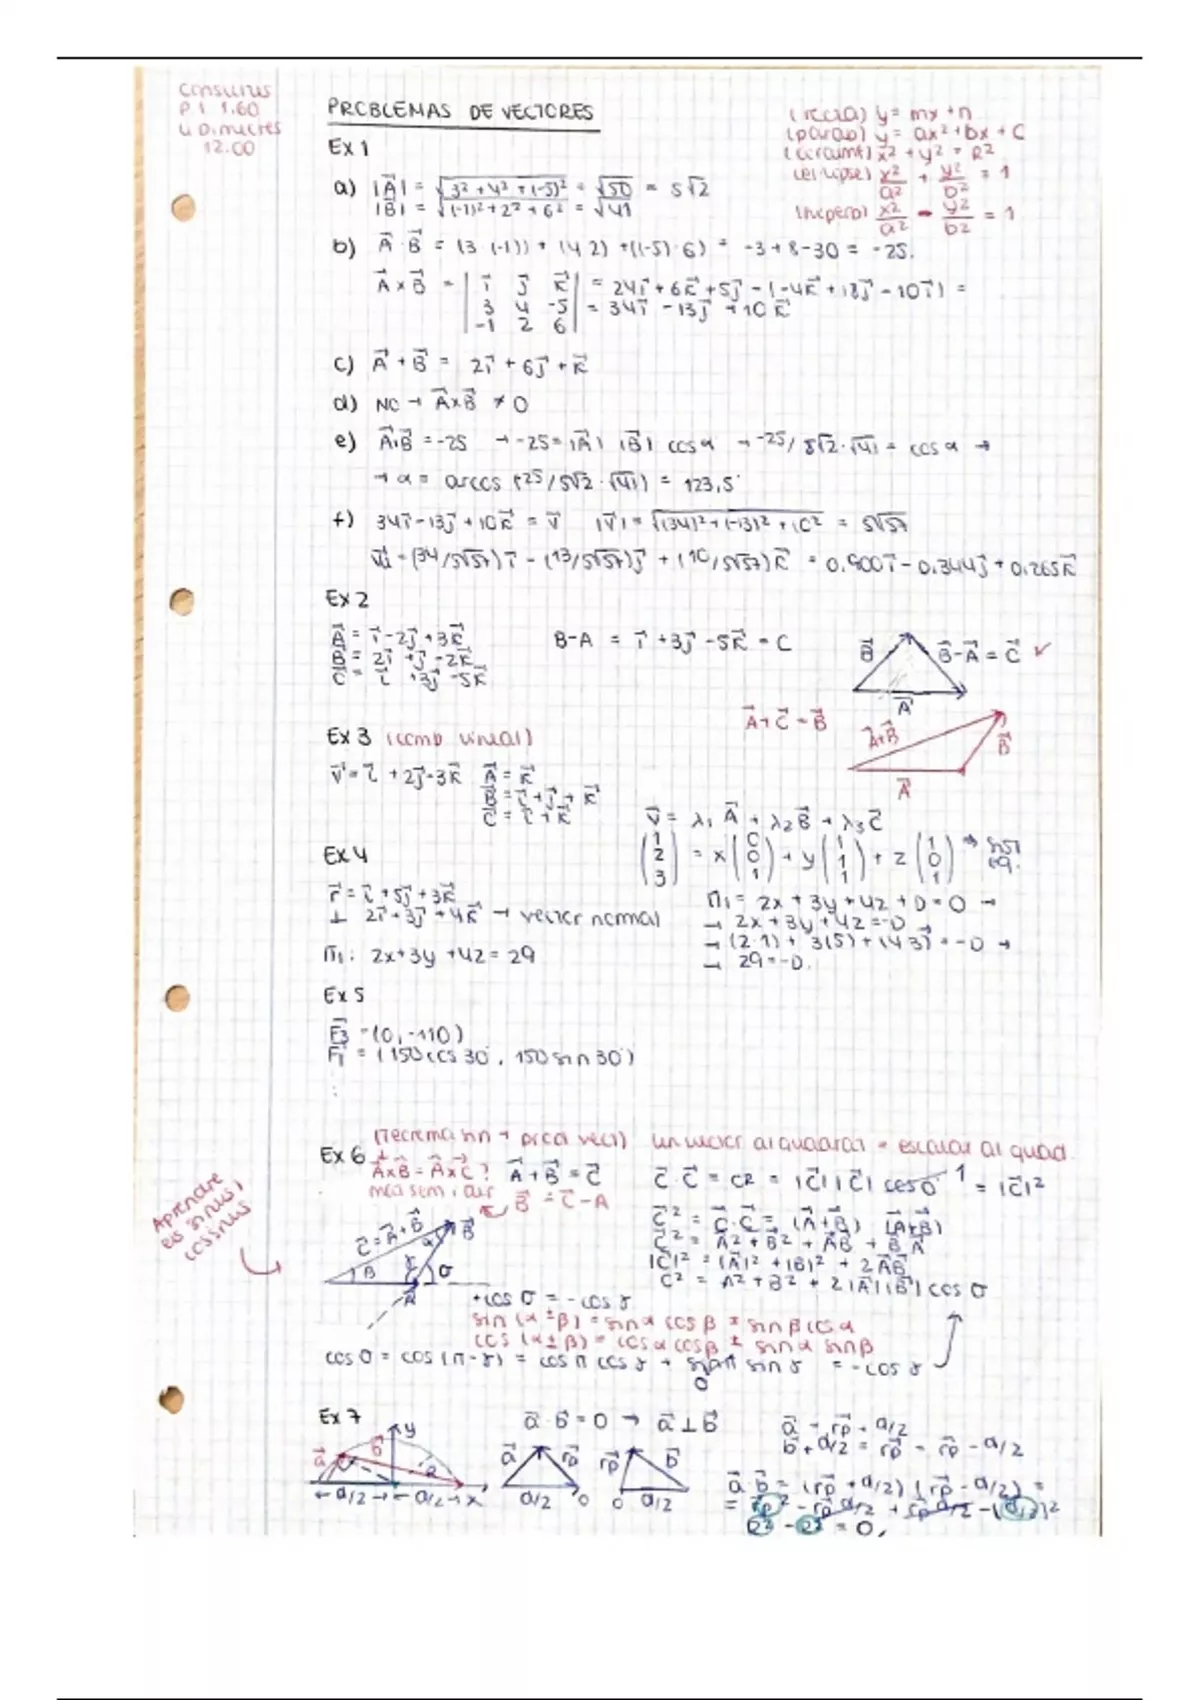 consultes
P.1 1.60
u Dimecres
12.00
PROBLEMAS DE VECTORES
(recta) y = mx + n
(parab) y = ax² + bx + c
(circumf) x² + y² = R²
(el·lipse) x²/a² + y²/b² = 1
(hiperb) x²/a² - y²/b² = 1
Ex 1
a) |A| = √3² + 4² + (-5)² = √50 = 5√2
|B| = √(-1)² + 2² + 6² = √41
b) A · B = (3 · (-1)) + (4·2) + ((-5)·6) = -3 + 8 - 30 = -25.
A × B = | i j k | = 24i + 6k + 5j - (-4k + 18j - 10i) =
3 4 -5 = 34i - 13j + 10k
-1 2 6
c) A + B = 2i + 6j + k
d) NO → A×B ≠ 0
e) A·B = -25 → -25 = |A| |B| cos α → -25/5√2·√41 = cos α →
→ α = arccos (-25/5√2·√41) = 123,5°
f) 34i - 13j + 10k = v |v| = √(34)² + (-13)² + 10² = 5√57
= (34/5√57)i - (13/5√57)j + (10/5√57)k = 0.900i - 0.344j + 0.265k
Ex 2
A = i - 2j + 3k
B = 2i + j - 2k
C = i + 3j - 5k
B-A = i + 3j - 5k = C
B
B-A = C ✓
A
A + C = B
A+B
B
A
Ex 3 (comb lineal)
v = i + 2j - 3k A = k
B = i + j + k
C = i + k
v = λ₁A + λ₂B + λ₃C
(1 2 3) = x (0 0 1) + y (1 1 1) + z (1 0 1) → sist eq.
Ex 4
r = i + 5j + 3k
⊥ 2i + 3j + 4k → vector normal
π₁: 2x + 3y + 4z = 29
π₁ = 2x + 3y + 4z + D = 0 →
→ 2x + 3y + 4z = -D →
→ (2·1) + 3(5) + (4·3) = -D →
→ 29 = -D.
Ex 5
F3 = (0, -110)
F1 = (150 cos 30°, 150 sin 30°)
Ex 6
(Teorema sin → prod vect) un vector al quadrat = escalar al quad.
A×B = A×C ?
A + B = C
B = C - A
C · C = C² = |C| |C| cos 0 1 = |C|²
C² = C · C = (A+B) (A+B)
C² = A² + B² + AB + BA
|C|² = |A|² + |B|² + 2AB
C² = A² + B² + 2|A||B| cos σ
Aprendre
els sinus i
cosinus
C = A + B
B
α
β
γ
σ
A
+cos σ = -cos γ
sin (α ± β) = sin α cos β ± sin β cos α
cos (α ± β) = cos α cos β ± sin α sin β
cos σ = cos (π - γ) = cos π cos γ + sin π sin γ = -cos γ
0
Ex 7
a · b = 0 → a ⊥ b
a = rp + a/2
b + a/2 = rp = rp - a/2
y
a
b
a/2
a/2
x
a
rp
a/2
0
rp
b
0
a/2
a · b = (rp + a/2) (rp - a/2) =
= rp² - rp a/2 + rp a/2 - (a/2)²
R² - R² = 0,